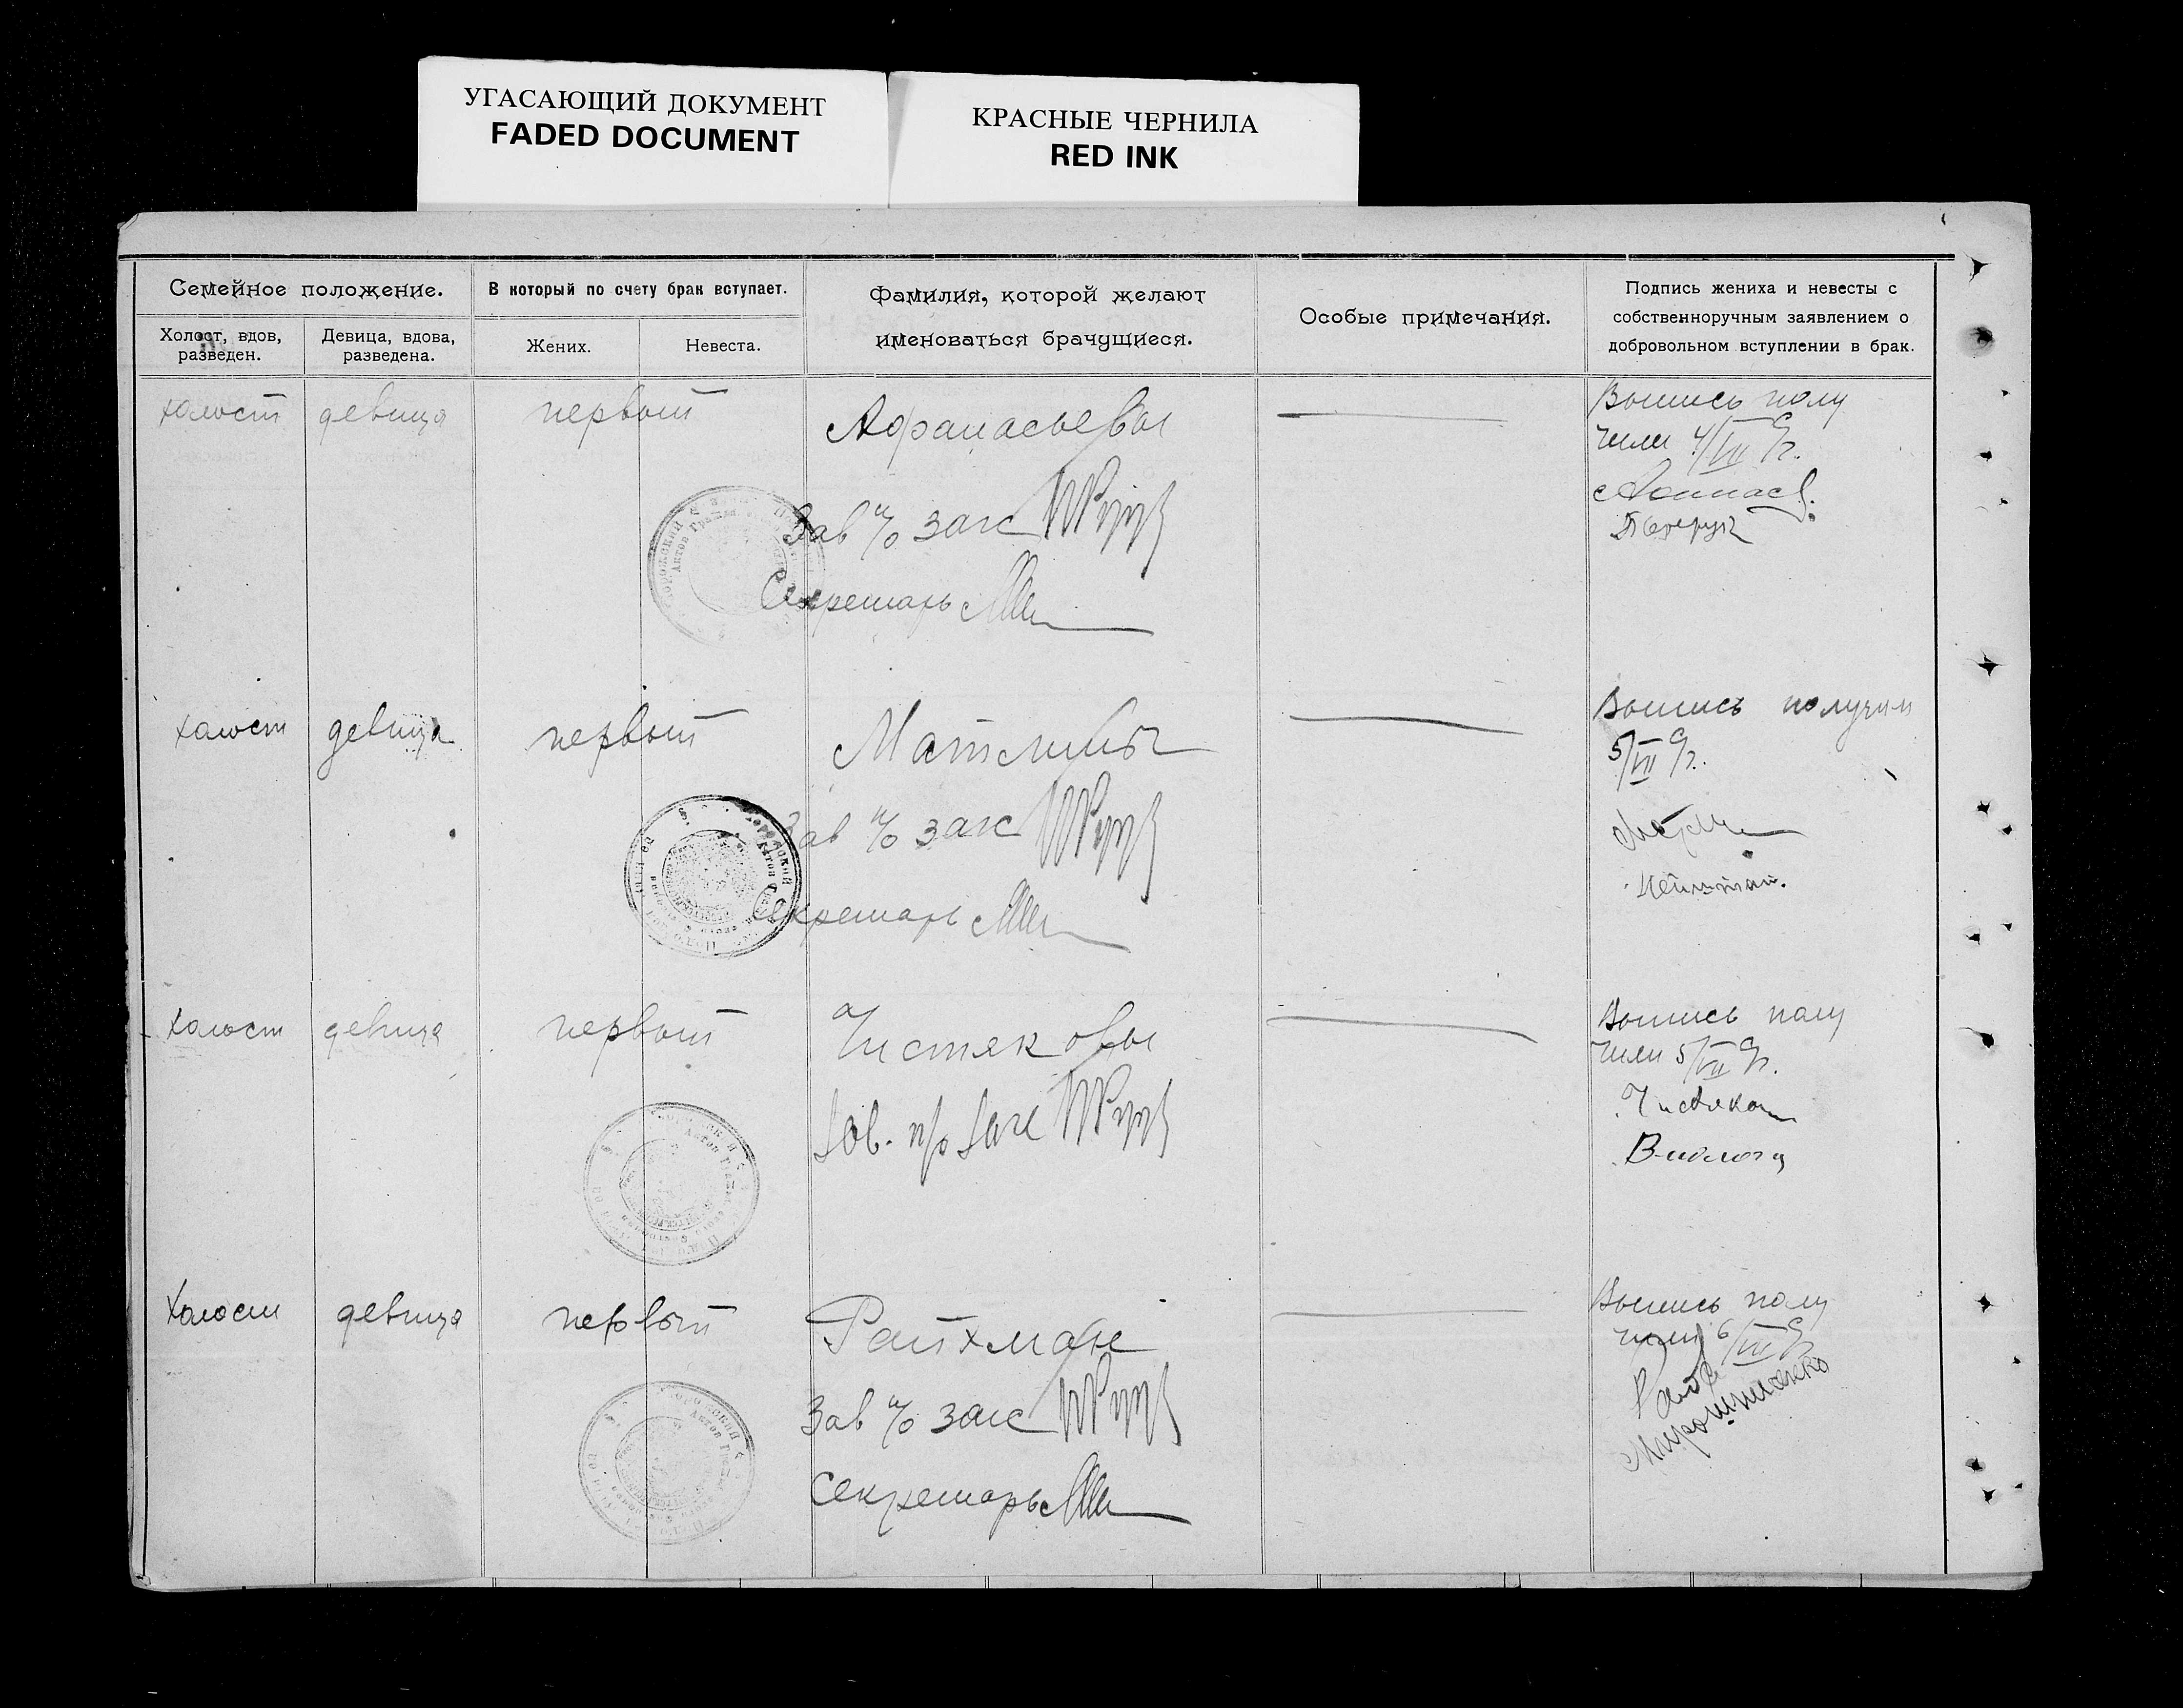 УГАСАЮЩИЙ ДОКУМЕНТ
FADED DOCUMENT
КРАСНЫЕ ЧЕРНИЛА
RED INK
Семейное положение.
Холост, вдов,
разведен.
Девица, вдова,
разведена.
В который по счету брак вступает.
Жених.
Невеста.
Фамилия, которой желают
именоваться брачущиеся.
Особые примечания.
Подпись жениха и невесты с
собственноручным заявлением о
добровольном вступлении в брак.
холост
девица
первый
Афанасьевы
Зав п/о загс
Секретарь
Выпись полу
чили 4/VII 9г.
холост
девица
первый
Зав п/о загс
Секретарь
Выпись получили
5/VII 9г.
холост
девица
первый
Чистяковы
Зав. п/о Загс
Выпись полу
чили 5/VII 9г.
Чистяков
холост
девица
первый
Райхман
Зав п/о загс
Секретарь
Выпись полу
чили 6/VII 9г
Мирошниченко